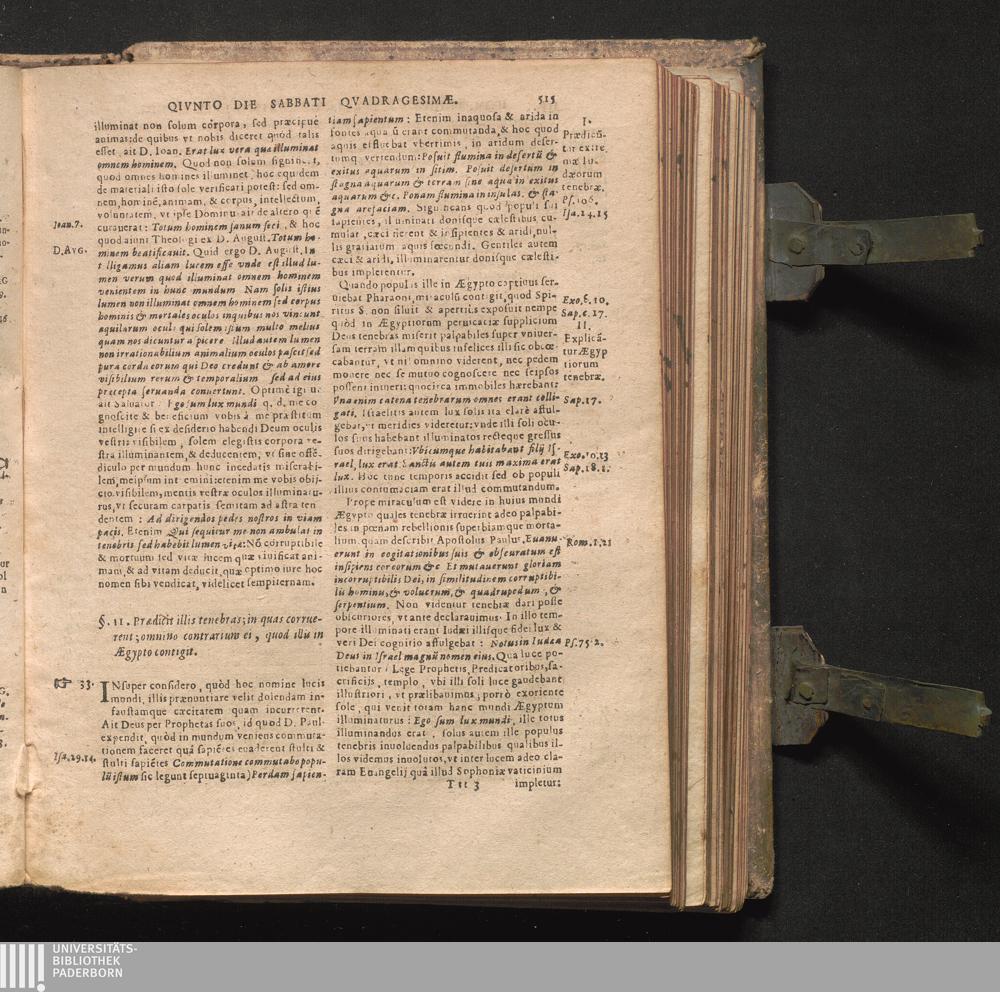 QIVNTO DIE SABBATI QVADRAGESIMÆ. 515
illuminat non solum corpora, sed præcipuè
animas: de quibus vt nobis diceret quòd talis
esset, ait D. Ioan. Erat lux vera quæ illuminat
omnem hominem. Quod non solum
quod omnes homines illuminet, hoc equidem
de materiali isto sole verificari potest: sed om-
nem, hominē, animam, & corpus, intellectum,
voluntatem, vt ipse Dominus ait de altero quē
curauerat: Totum hominem sanum feci, & hoc
quod aiunt Theologi ex D. August. Totum ho-
minem beatificauit. Quid ergo D. August. In
t lligamus aliam lucem esse vnde est illud lu-
men verum quod illuminat omnem hominem
venientem in hunc mundum Nam solis istius
lumen non illuminat omnem hominem sed corpus
hominis & mortales oculos inquibus nos vincunt
aquilarum oculi qui solem istum multo melius
quam nos dicuntur aspicere Illud autem lumen
non irrationabilium animalium oculos pascit sed
pura corda eorum qui Deo credunt & ab amore
visibilium rerum & temporalium sed ad eius
præcepta seruanda conuertunt. Optimè
ait Saluator Ego sum lux mundi q. d. me co
gnoscite & beneficium vobis à me præstitum
intelligite si ex desiderio habendi Deum oculis
vestris visibilem, solem elegistis corpora ve-
stra illuminantem, & deducentem, vt sine offē-
diculo per mundum hunc incedatis miserabi-
lem, meipsum int emini: etenim me vobis obij-
cio visibilem, mentis vestræ oculos illuminatu-
rus, vt securam carpatis semitam ad astra ten
dentem : Ad dirigendos pedes nostros in viam
pacis. Etenim Qui sequitur me non ambulat in
tenebris sed habebit lumen vitæ: Nō corruptibile
& mortuum sed vitæ lucem quæ viuificat ani-
mam, & ad vitam deducit, quæ optimo iure hoc
nomen sibi vendicat, videlicet sempiternam.
§. II. Prædicit illis tenebras; in quas corrue-
rent; omnino contrarium ei, quod illis in
Ægypto contigit.
INsuper considero, quòd hoc nomine lucis
mundi, illis prænuntiare velit dolendam in-
faustamque cæcitatem quam incurrerent.
Ait Deus per Prophetas suos, id quod D. Paul.
expendit, quòd in mundum veniens commuta-
tionem faceret quâ sapiētes euaderent stulti &
stulti sapiētes Commutatione commutabo popu-
lū istum (sic legunt septuaginta) Perdam sapien-
Ioan. 7.
D. AVG.
33.
Isa. 29. 14.
tiam sapientum: Etenim inaquosa & arida in
fontes aqua ū erant commutanda, & hoc quod
aquis effluebat vberrimis, in aridum deser-
tumq; vertendum: Posuit flumina in desertū &
exitus aquarum in sitim. Posuit desertum in
stagna aquarum & terram sine aqua in exitus
aquarum &c. Ponam flumina in insulas, & sta-
gna arefaciam. Significans quod populi sui
sapientes, illuminati donisque cælestibus cu-
mulati, cæci fierent & insipientes & aridi, nul-
lis gratiarum aquis fœcundi. Gentiles autem
cæci & aridi, illuminarentur donisque cælesti-
bus implerentur.
Quando populus ille in Ægypto captiuus ser-
uiebat Pharaoni, miraculū contigit, quod Spi-
ritus S. non siluit & apertiùs exposuit nempe
quòd in Ægyptiorum peruicaciæ supplicium
Deus tenebras miserit palpabiles super vniuer-
sam terram illam quibus infelices illi sic obcæ-
cabantur, vt nil omnino viderent, nec pedem
mouere nec se mutuo cognoscere nec seipsos
possent intueri: quocirca immobiles hærebant:
Vna enim catena tenebrarum omnes erant colli-
gati. Israelitis autem lux solis ita clarè affful-
gebat, vt meridies videretur: vnde illi soli ocu-
los suos habebant illuminatos rectèque gressus
suos dirigebant: Vbicumque habitabant filij Is-
rael, lux erat Sanctis autem tuis maxima erat
lux. Hoc tunc temporis accidit sed ob populi
illius contumaciam erat illud commutandum.
Prope miraculum est videre in huius mundi
Ægypto quales tenebræ irruerint adeo palpabi-
les in pœnam rebellionis superbiæque morta-
lium, quam describit Apostolus Paulus. Euanu-
erunt in cogitationibus suis & obscuratum est
insipiens cor eorum &c Et mutauerunt gloriam
incorruptibilis Dei, in similitudinem corruptibi-
lis hominis, & volucrum, & quadrupedum, &
serpentium. Non videntur tenebræ dari posse
obscuriores, vt ante declarauimus. In illo tem-
pore illuminati erant Iudæi illisque fidei lux &
veri Dei cognitio affulgebat : Notus in Iudæa
Deus in Israel magnū nomen eius. Qua luce po-
tiebantur Lege Prophetis, Predicatoribus, sa-
crificijs, templo, vbi illi soli luce gaudebant
illustriori, vt prælibauimus; porrò exoriente
sole, qui venit totam hanc mundi Ægyptum
illuminaturus: Ego sum lux mundi, ille totus
illuminandus erat, solus autem ille populus
tenebris inuoluendus palpabilibus qualibus il-
los videmus inuolutos, vt inter lucem adeo cla-
ram Euangelij quâ illud Sophoniæ vaticinium
Ttt 3 impletur:
I.
Prædicū-
tur exite
mæ Iu-
dæorum
tenebræ.
Ps. 106.
Isa. 24. 15
Exo. c. 10.
Sap. c. 17.
II.
Explicā-
tur Ægyp
tiorum
tenebræ.
Sap. 17.
Exo. 10. 23
Sap. 18. 1.
Rom. 1. 21
Ps. 75. 2.
UNIVERSITÄTS-
BIBLIOTHEK
PADERBORN